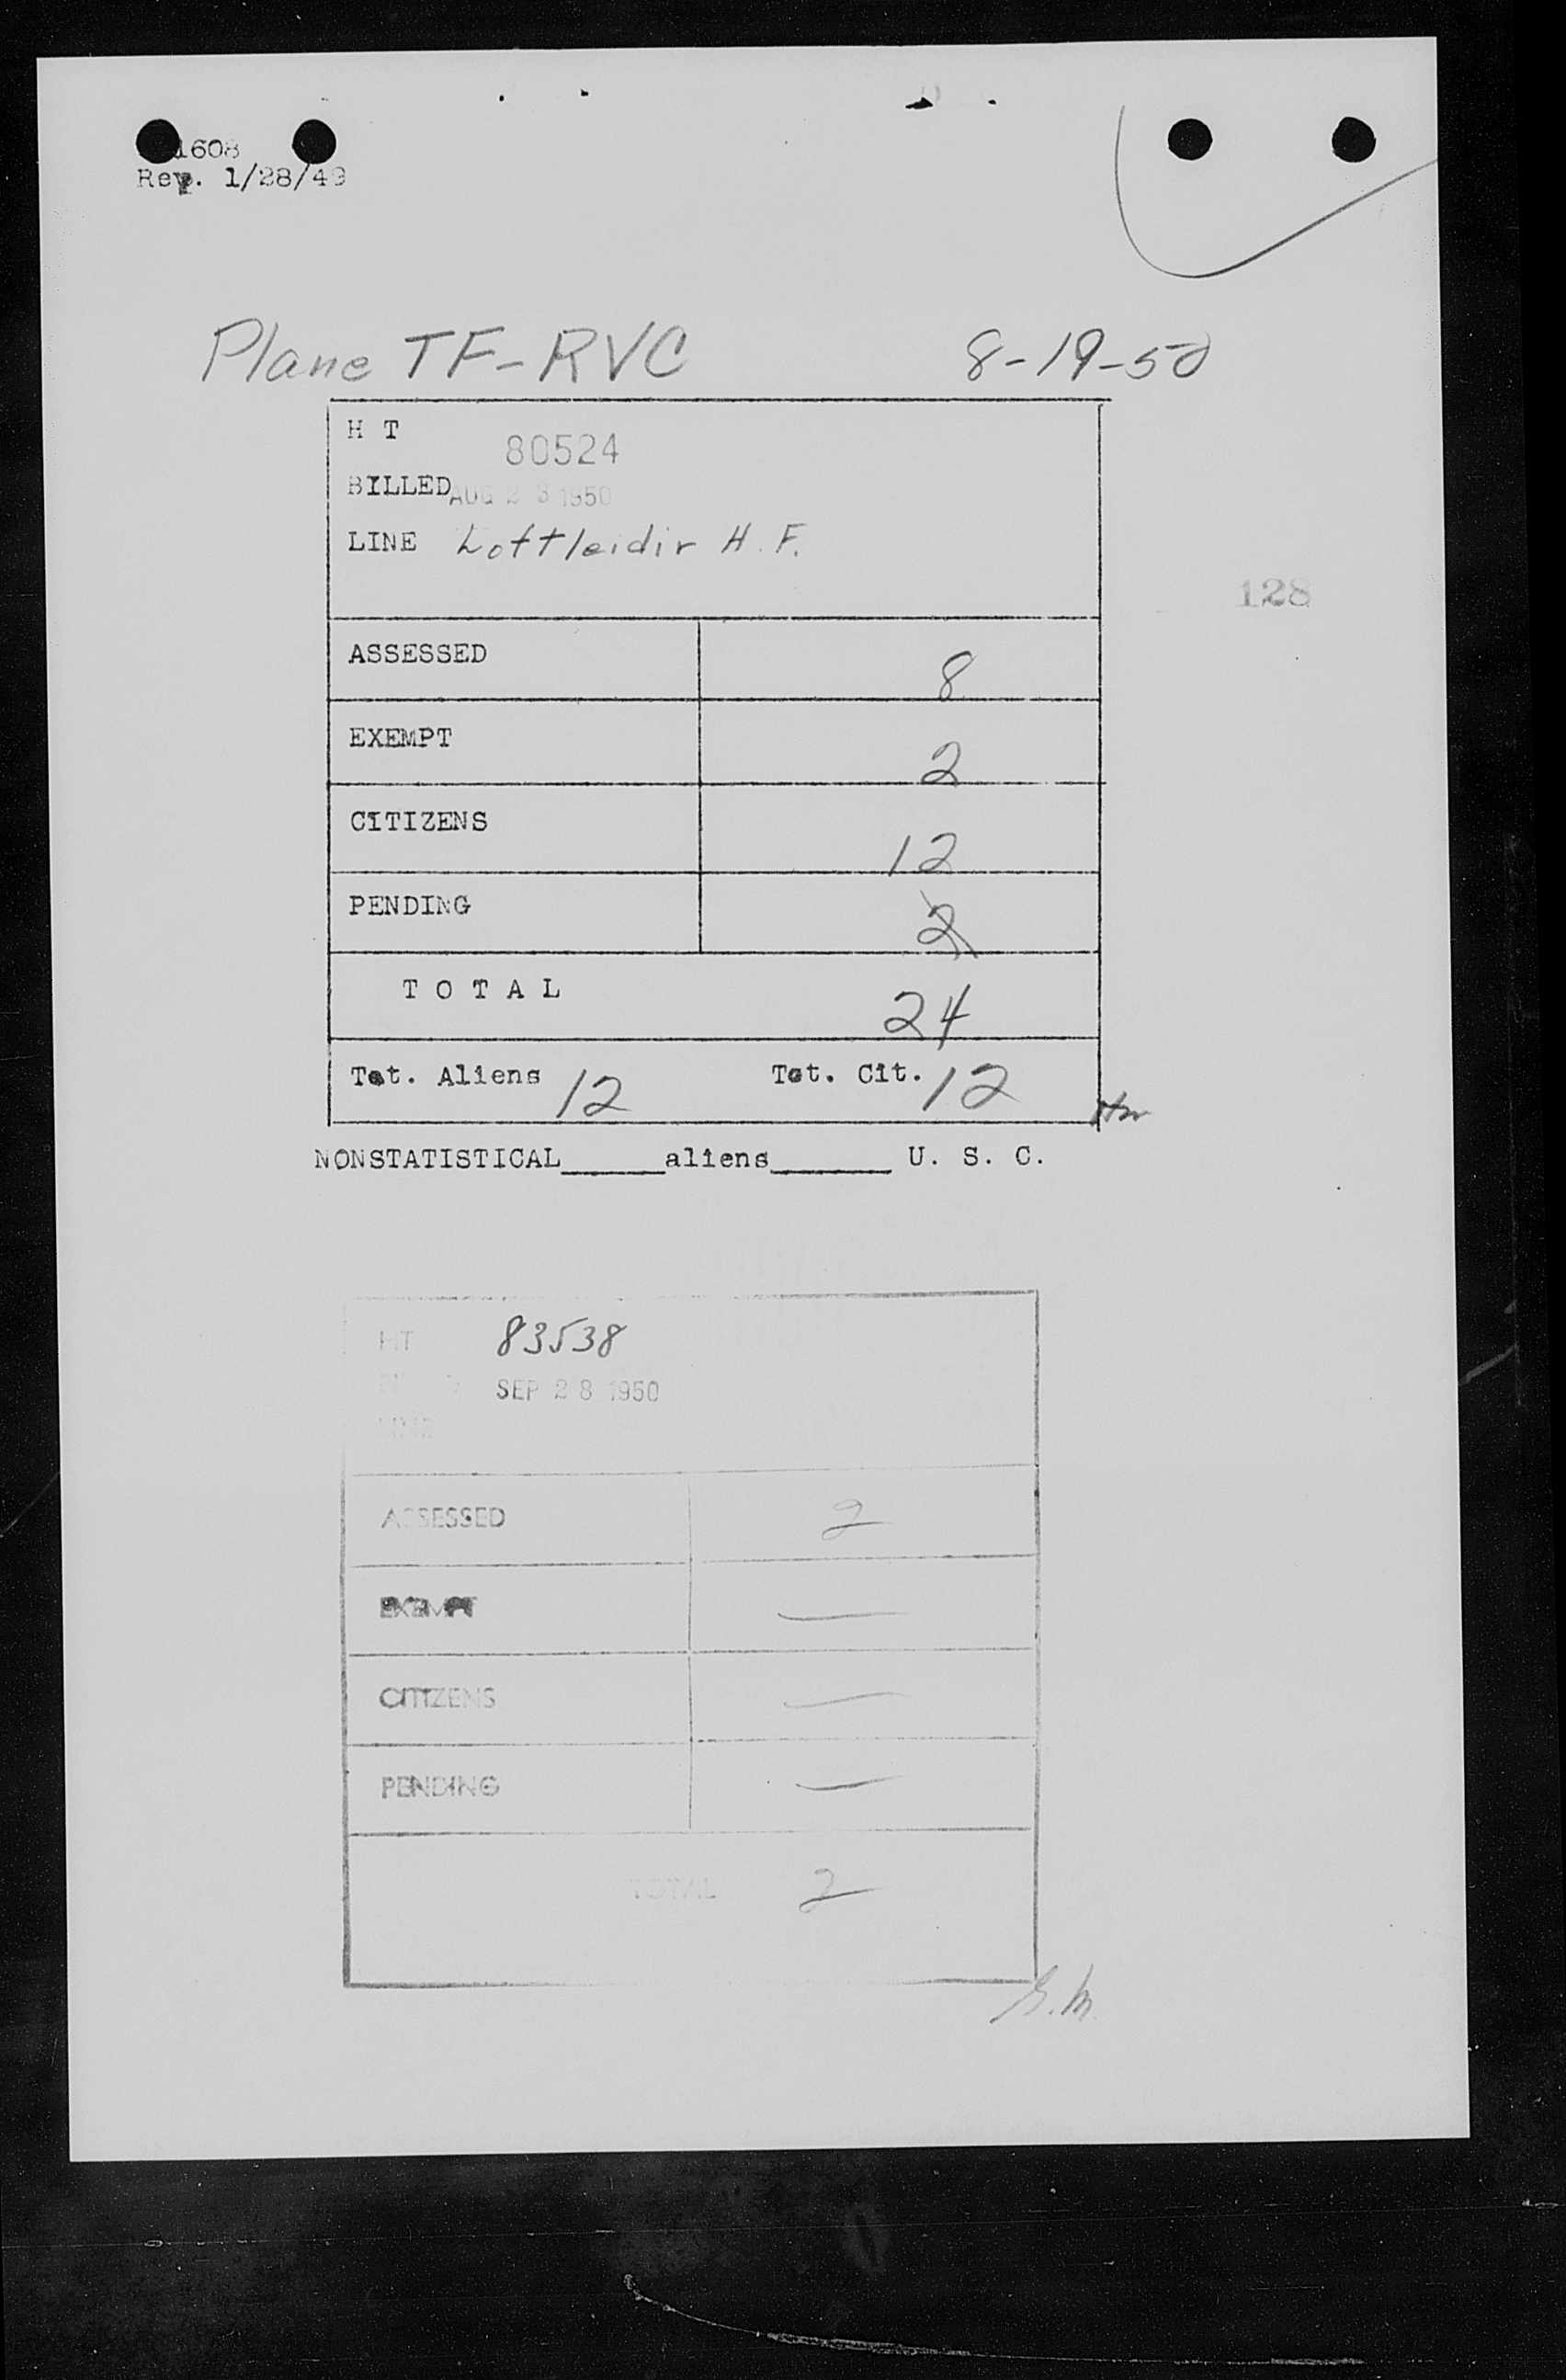 1608
Rev. 1/28/49
Plane TF-RVC 8-19-50
H T 80524
BILLED AUG 23 1950
LINE Loftleidir H.F.
128
ASSESSED 8
EXEMPT 2
CITIZENS 12
PENDING 2
TOTAL 24
Tot. Aliens 12 Tot. Cit. 12
NONSTATISTICAL______aliens_______ U. S. C.
HT 83538
SEP 28 1950
LINE
ASSESSED 2
EXEMPT —
CITIZENS —
PENDING —
TOTAL 2